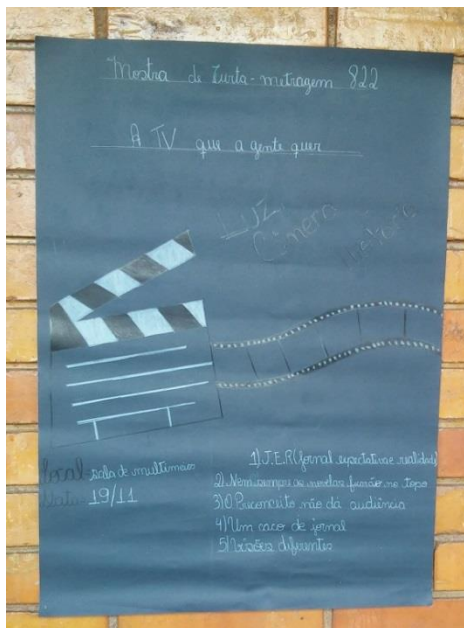 Mostra de Curta-metragem 822
A TV que a gente quer
LUZ,
Câmera
Local: sala de multimeios
Data: 19/11
1) J.E.R (Jornal expectativa e realidade)
2) Nem sempre se mostra funão no topo
3) O Preconceito não dá audiência
4) Um caco de jornal
5) Visões diferentes